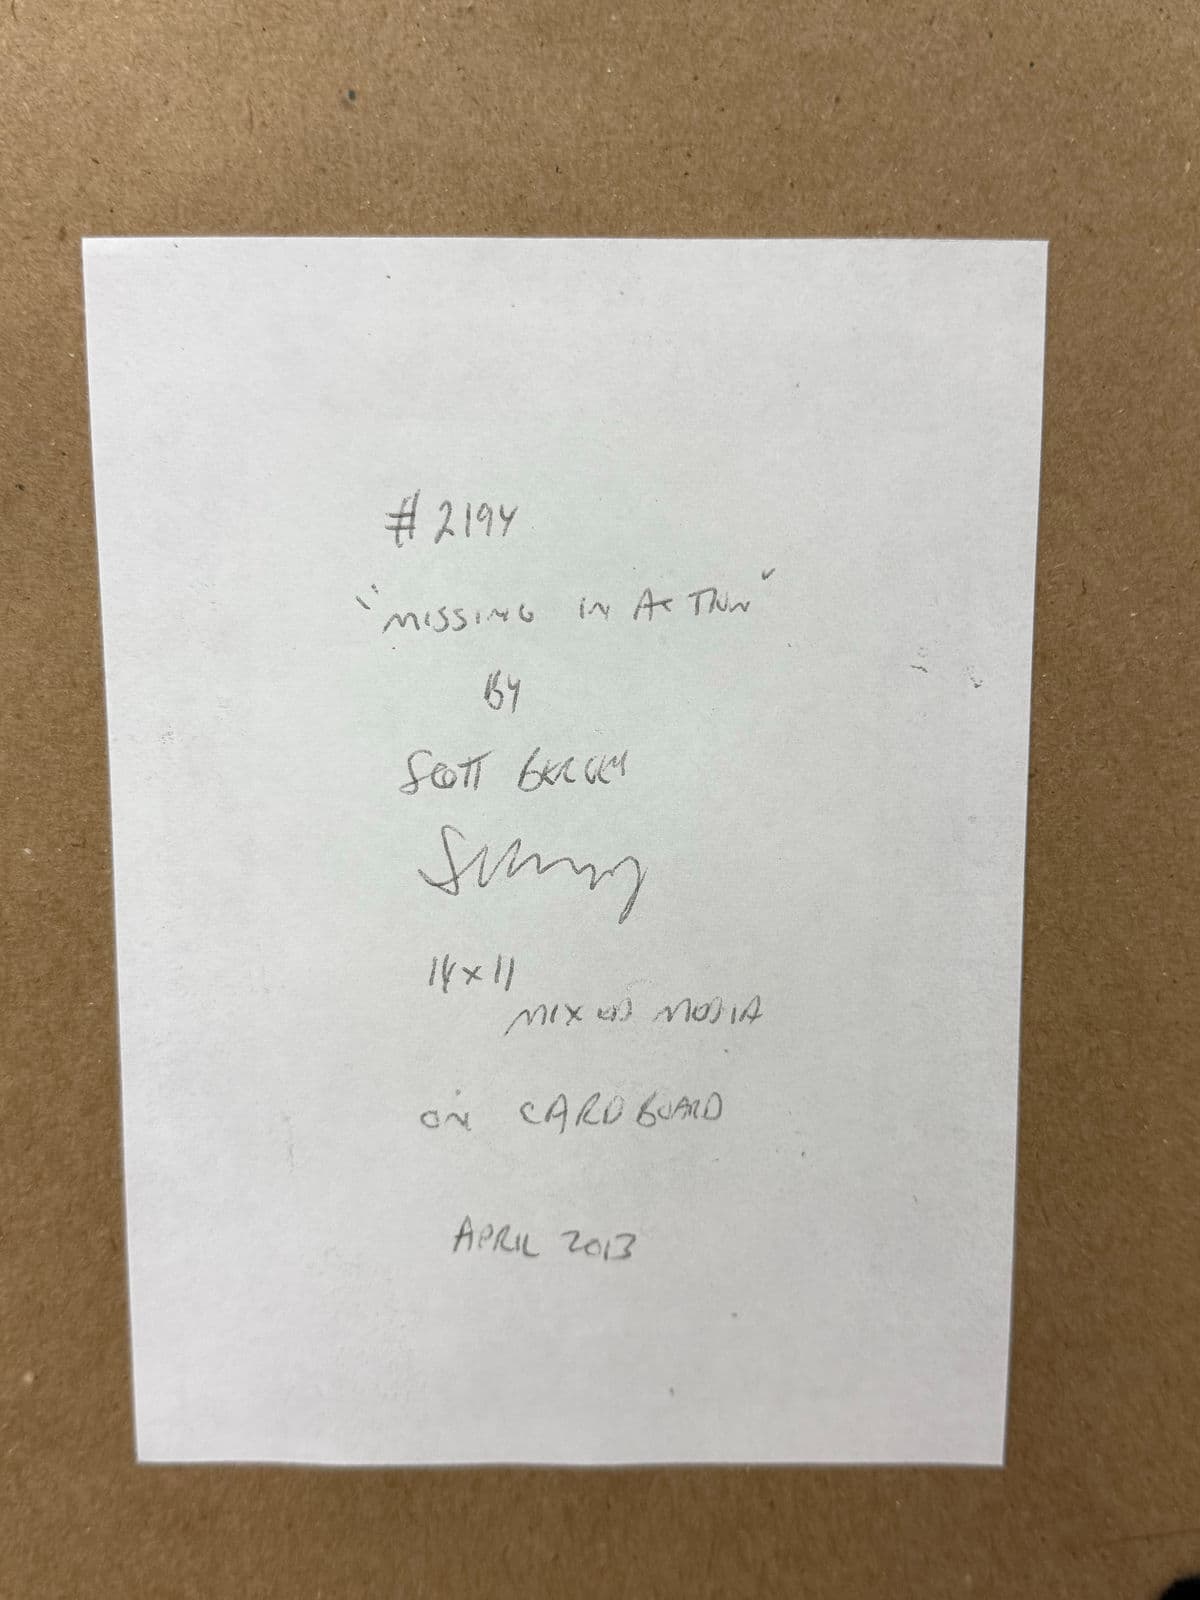 #2194
"MISSING IN ACTION"
BY
SCOTT
14x11
MIXED MEDIA
ON CARDBOARD
APRIL 2013